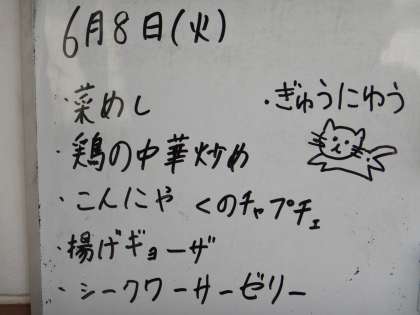 6月8日(火)
・菜めし
・鶏の中華炒め
・こんにゃくのチャプチェ
・揚げギョーザ
・シークワーサーゼリー
・ぎゅうにゅう